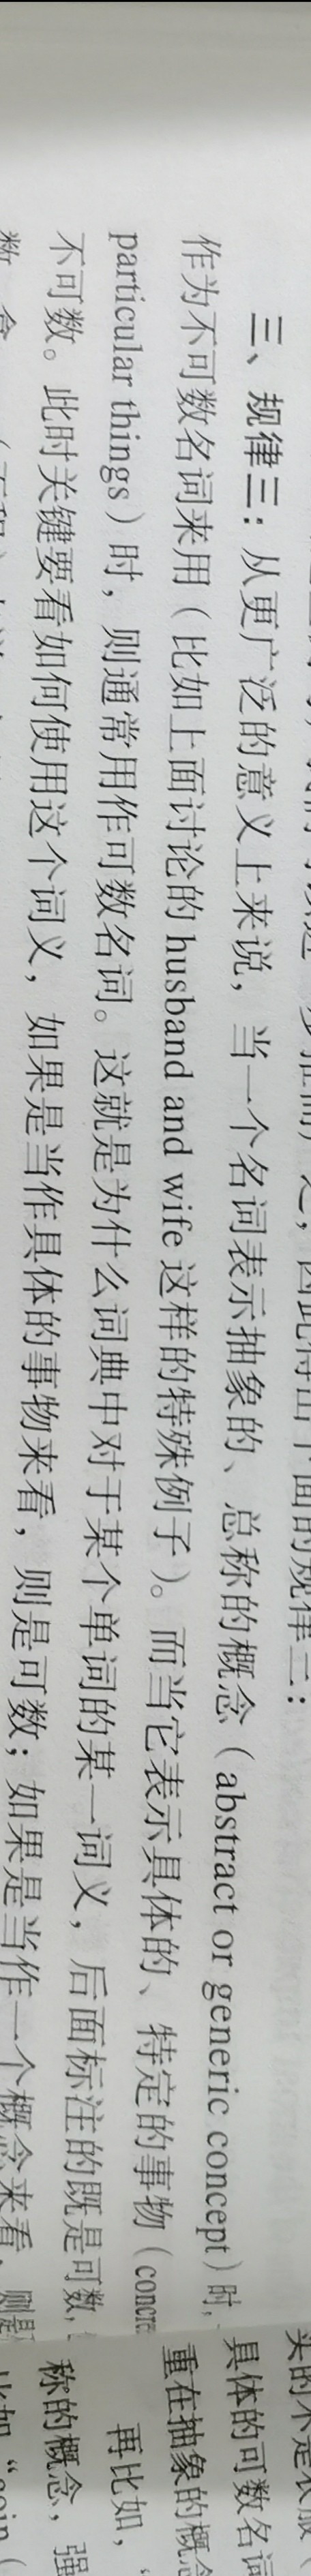 步推而广之，因此得出下面的规律三：
三、规律三：从更广泛的意义上来说，当一个名词表示抽象的、总称的概念（abstract or generic concept）时，
作为不可数名词来用（比如上面讨论的 husband and wife 这样的特殊例子）。而当它表示具体的、特定的事物（concre
particular things）时，则通常用作可数名词。这就是为什么词典中对于某个单词的某一词义，后面标注的既是可数，
不可数。此时关键要看如何使用这个词义，如果是当作具体的事物来看，则是可数；如果是当作一个概念来看，则是
数
具体的可数名词
重在抽象的概念
再比如，“
称的概念，强